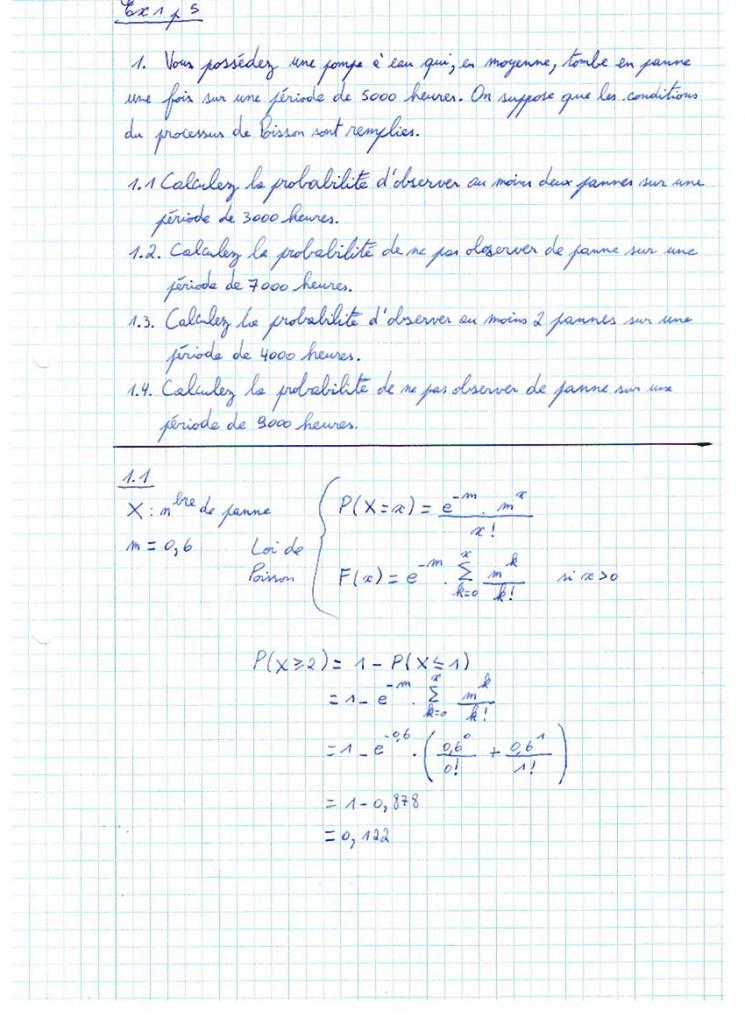 Ex 1 p 5
1. Vous possédez une pompe à eau qui, en moyenne, tombe en panne
une fois sur une période de 5000 heures. On suppose que les conditions
du processus de Poisson sont remplies.
1.1 Calculez la probabilité d'observer au moins deux pannes sur une
période de 3000 heures.
1.2. Calculez la probabilité de ne pas observer de panne sur une
période de 7000 heures.
1.3. Calculez la probabilité d'observer au moins 2 pannes sur une
période de 4000 heures.
1.4. Calculez la probabilité de ne pas observer de panne sur une
période de 9000 heures.
1.1
X : n^bre de panne
m = 0,6
Loi de
Poisson
P(X=x) = e^-m . m^x / x!
F(x) = e^-m . Σ_{k=0}^{x} m^k / k! si x>0
P(X≥2) = 1 - P(X≤1)
= 1 - e^-m . Σ_{k=0}^{x} m^k / k!
= 1 - e^-0,6 . (0,6^0 / 0! + 0,6^1 / 1!)
= 1 - 0,878
= 0,122